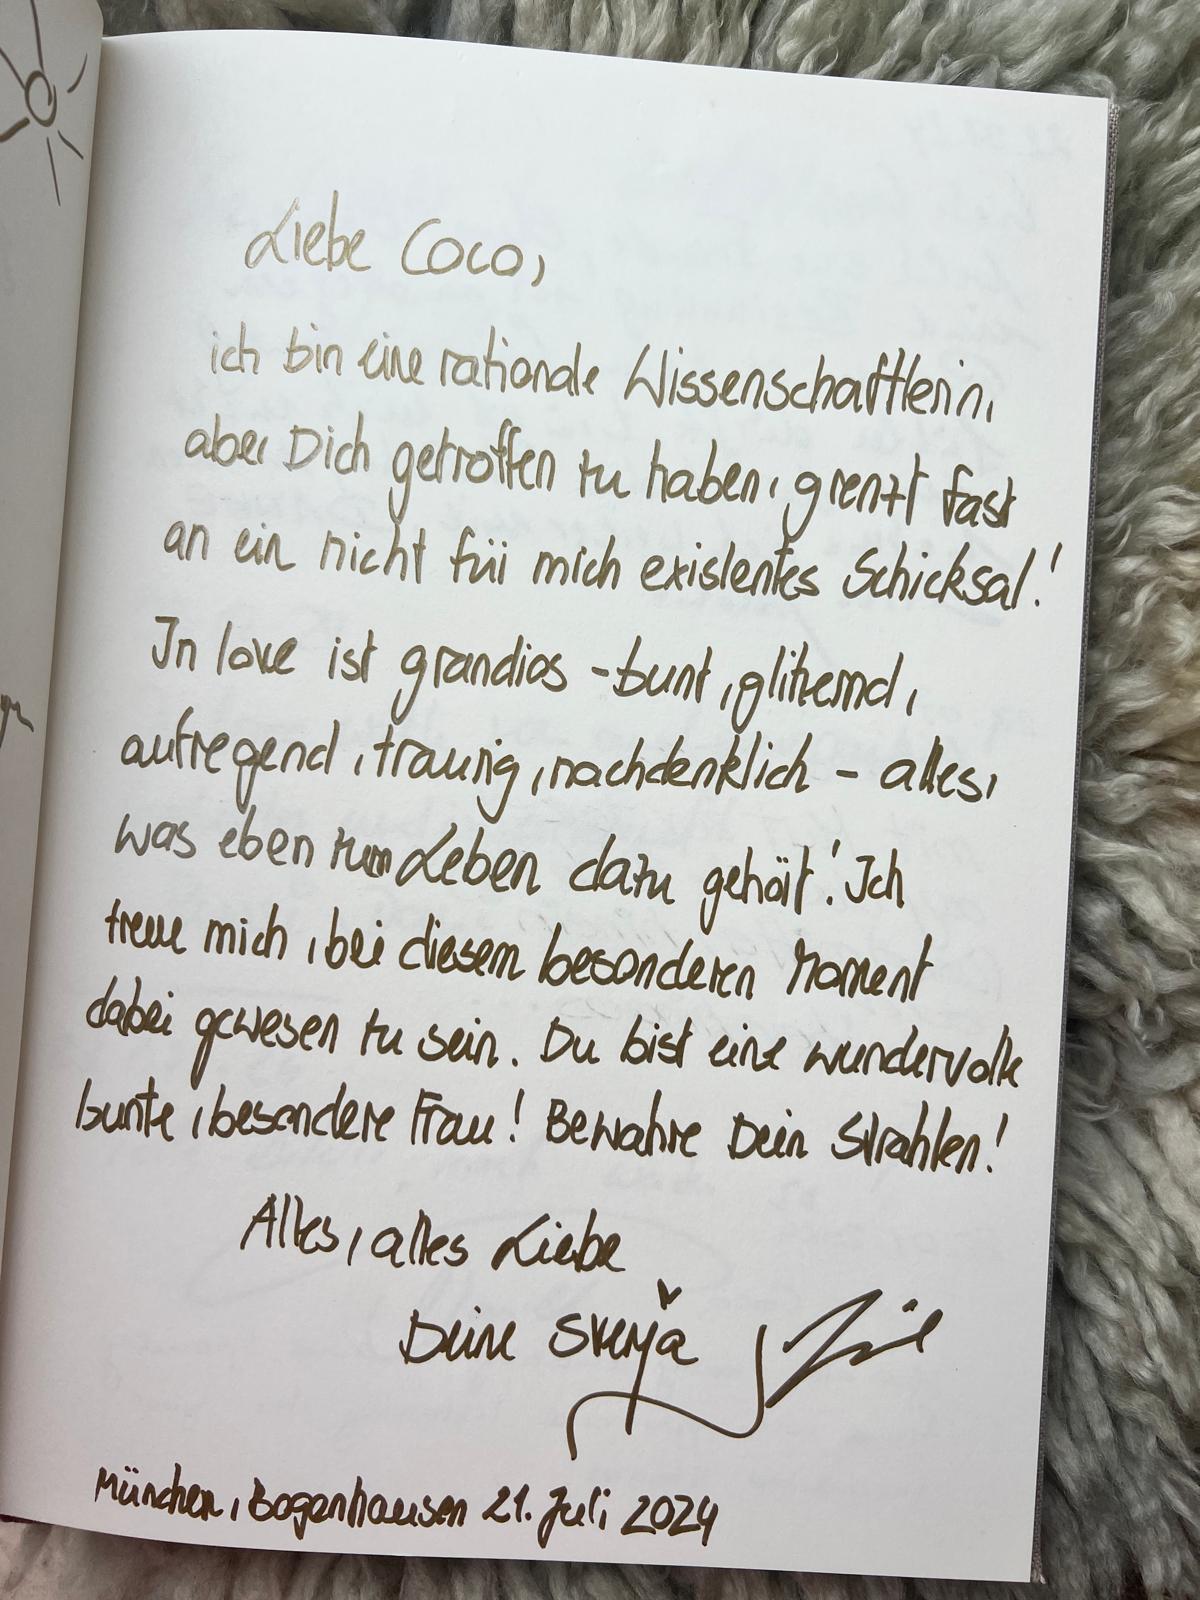 Liebe Coco,
ich bin eine rationale Wissenschaftlerin,
aber Dich getroffen zu haben, grenzt fast
an ein nicht für mich existentes Schicksal!
In love ist grandios - bunt, glitzernd,
aufregend, traurig, nachdenklich - alles,
was eben zum Leben dazu gehört! Ich
freue mich, bei diesem besonderen Moment
dabei gewesen zu sein. Du bist eine wundervolle
bunte, besondere Frau! Bewahre Dein Strahlen!
Alles, alles Liebe
Deine Svenja
München, Bogenhausen 21. Juli 2024